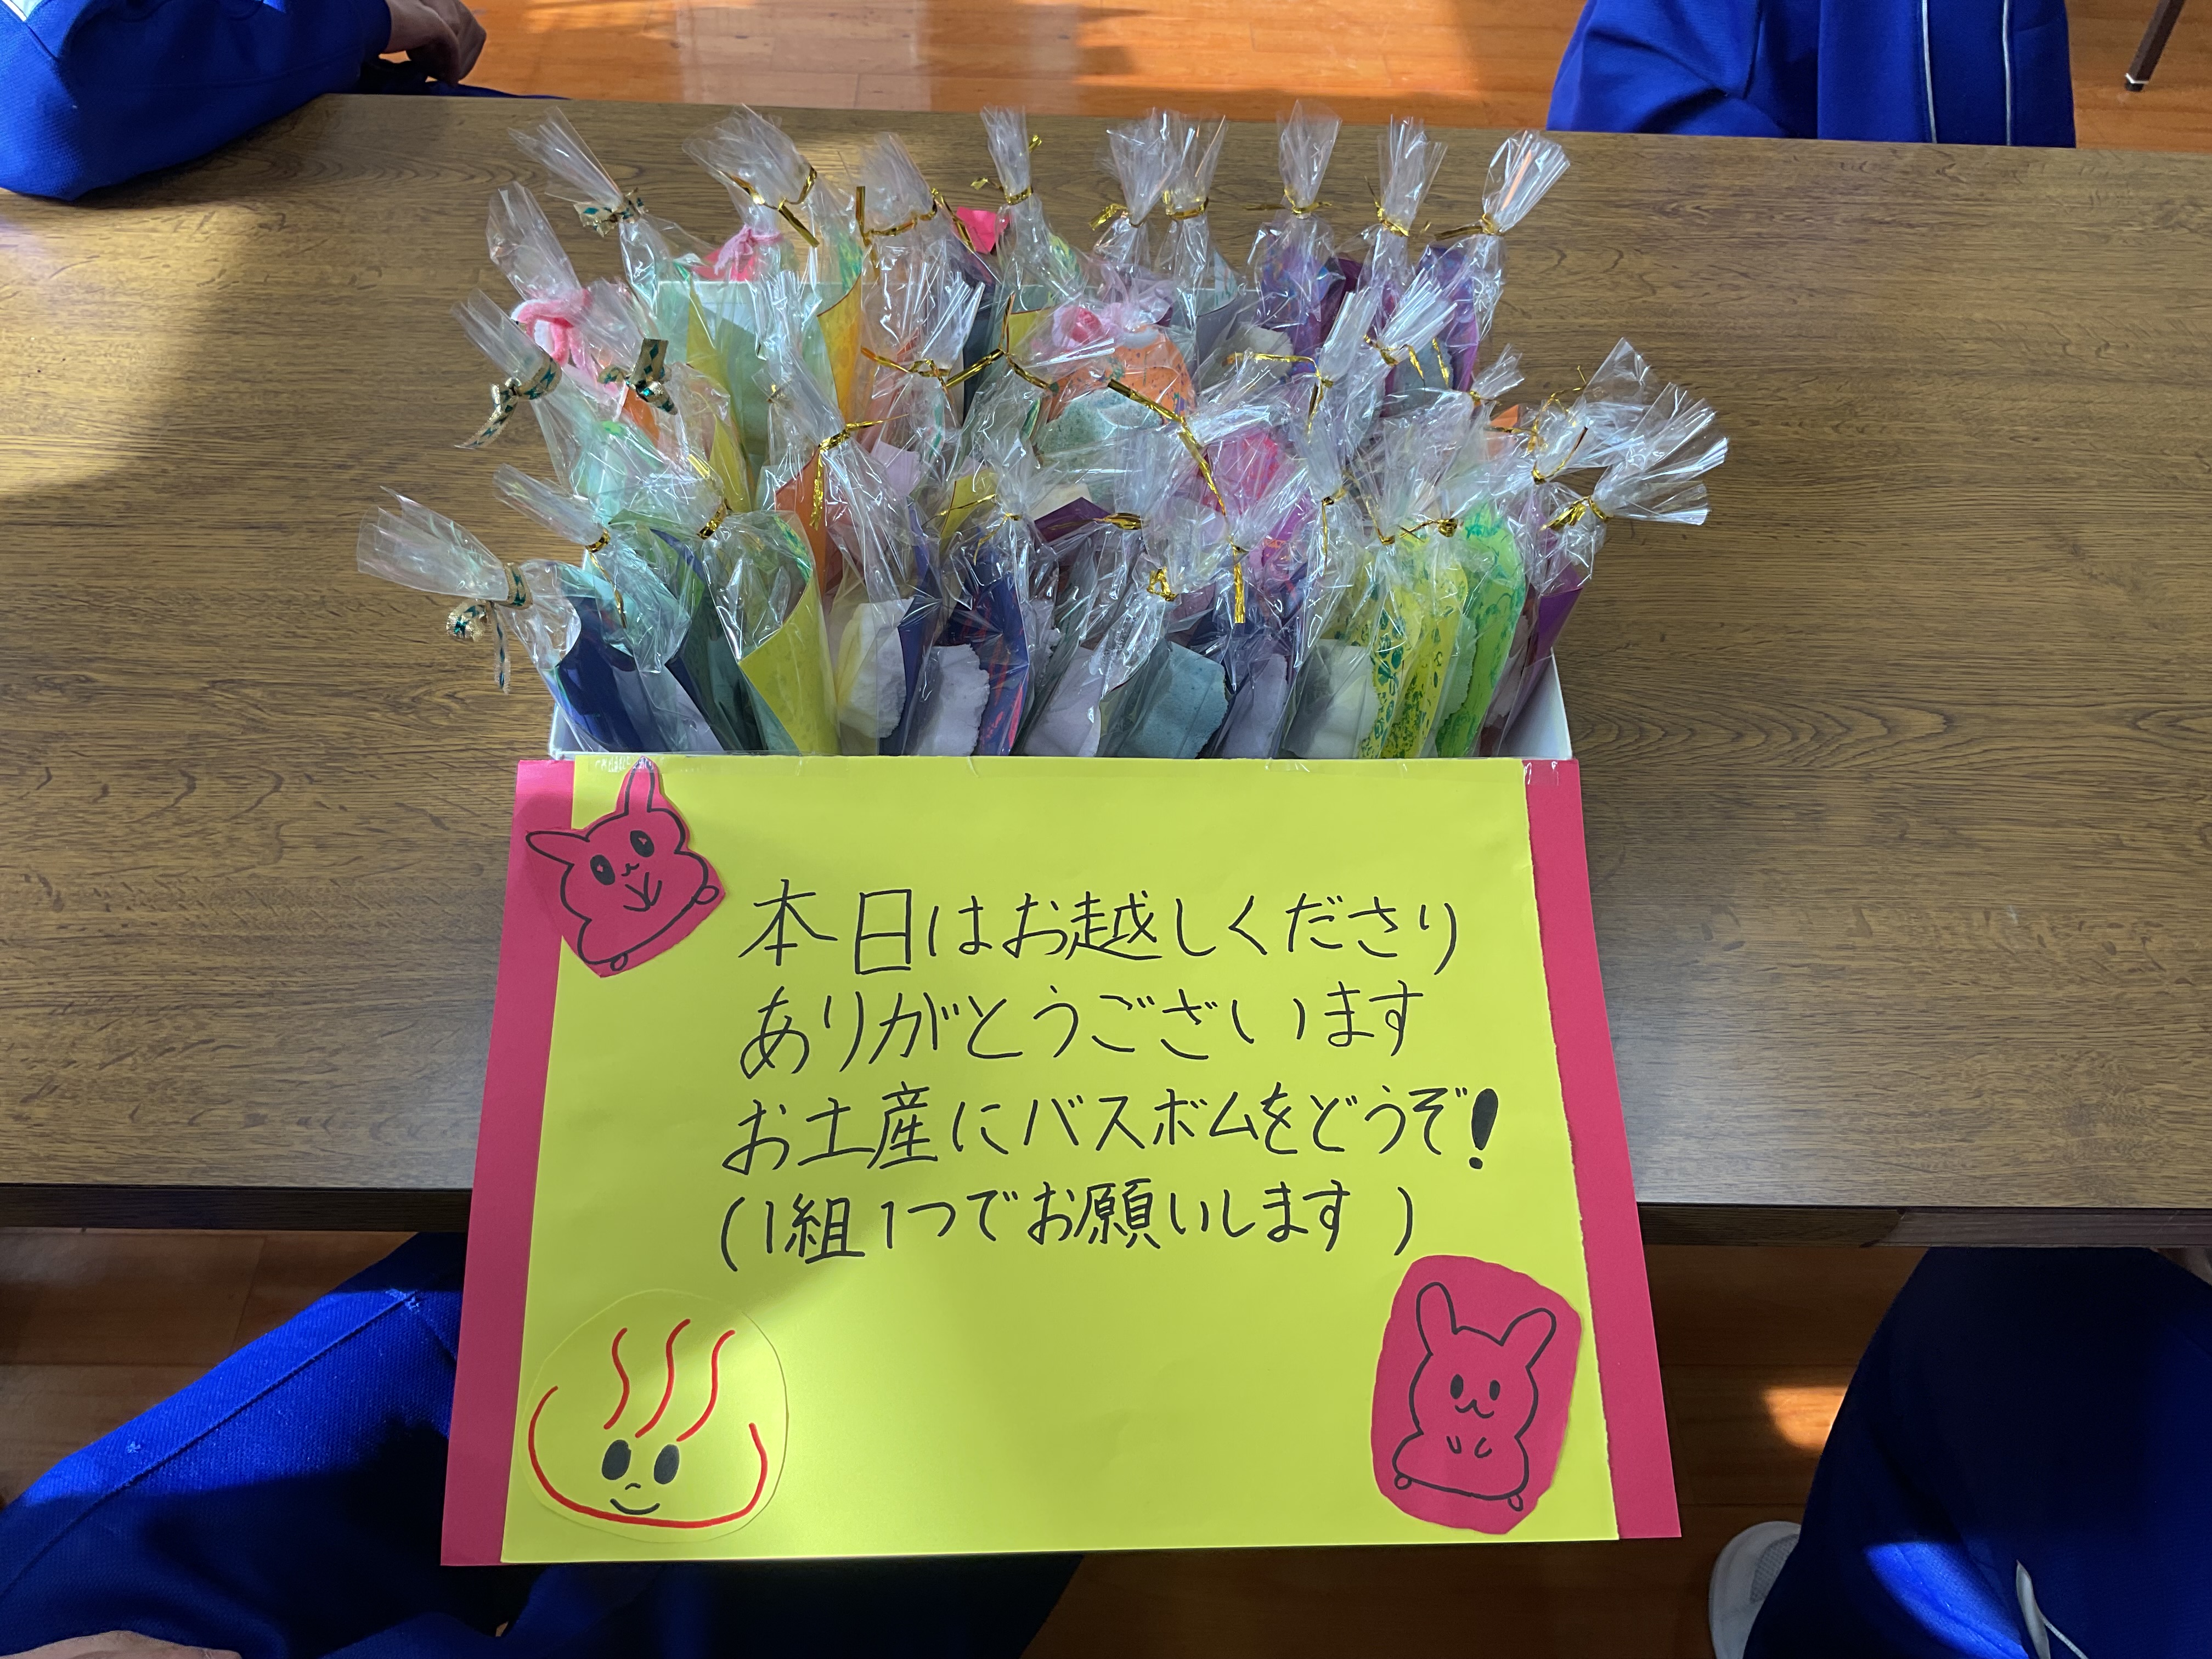 本日はお越しくださり
ありがとうございます
お土産にバスボムをどうぞ!
(1組1つでお願いします)